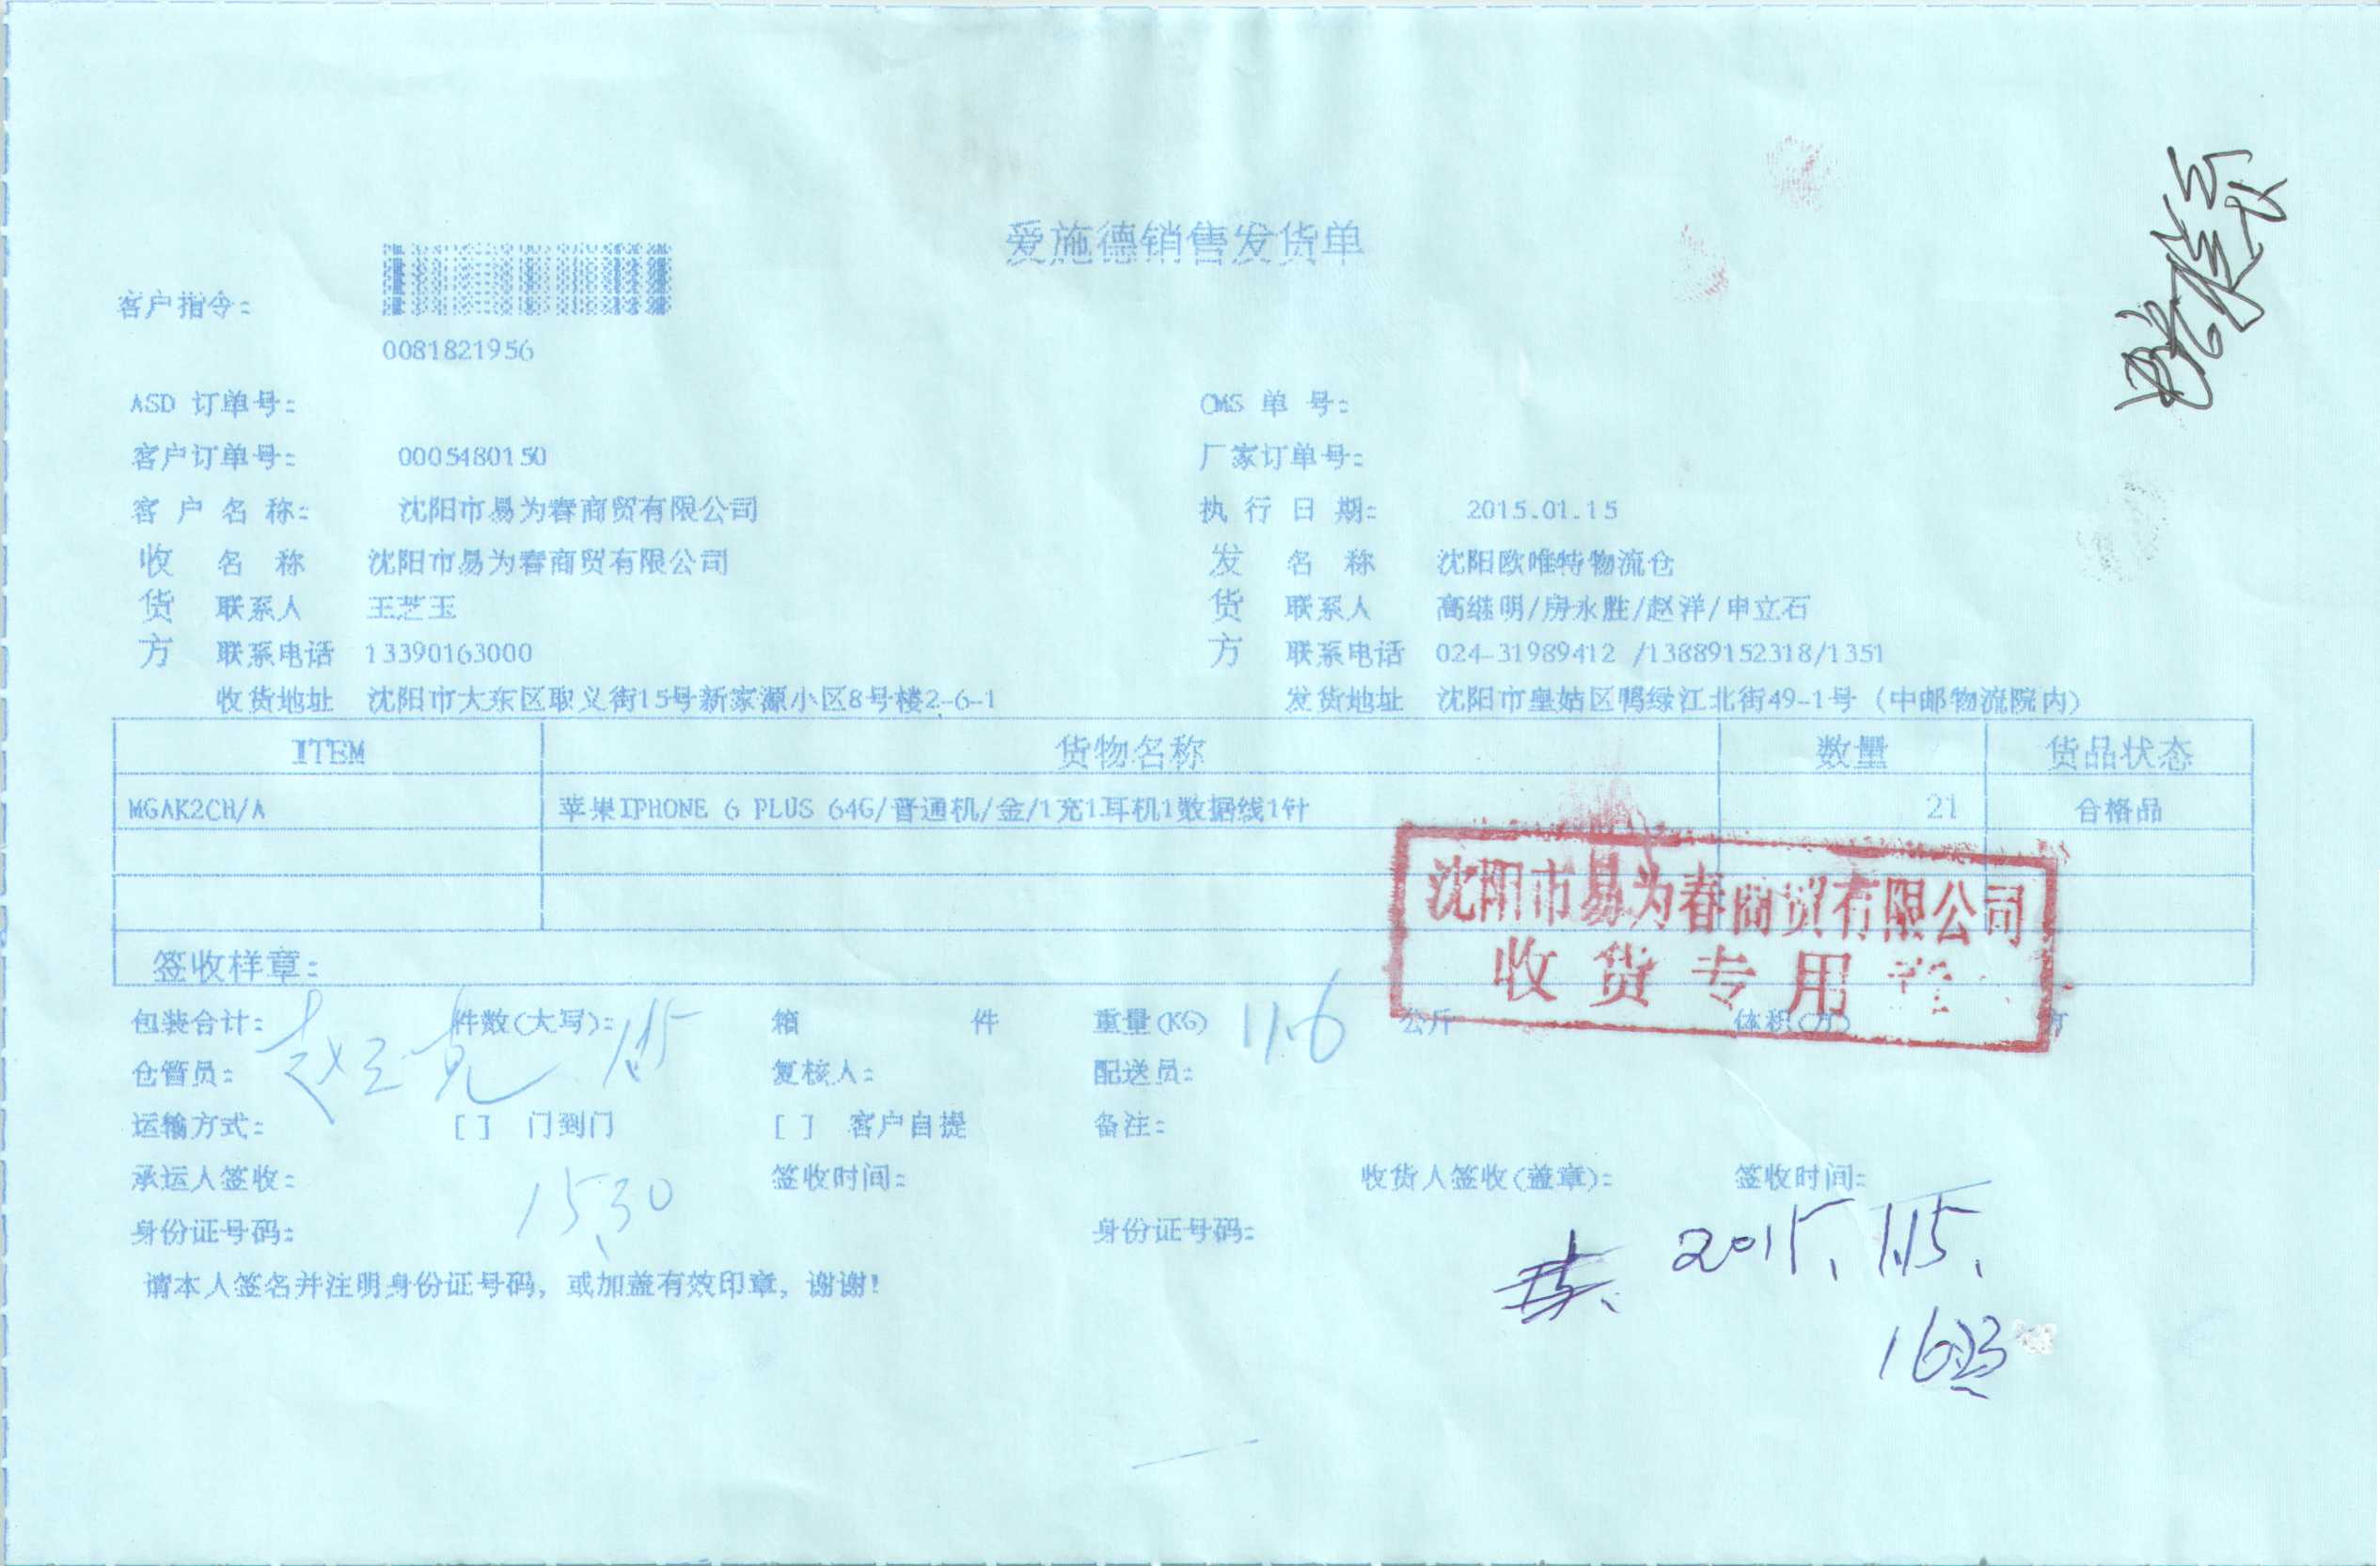 爱施德销售发货单
客户指令:
0081821956
ASD 订单号:
OMS 单 号:
客户订单号: 0005480150
厂家订单号:
客 户 名 称: 沈阳市易为春商贸有限公司
执 行 日 期: 2015.01.15
收 名 称 沈阳市易为春商贸有限公司
发 名 称 沈阳欧唯特物流仓
货 联系人 王芝玉
货 联系人 高继明/房永胜/赵洋/申立石
方 联系电话 13390163000
方 联系电话 024-31989412 /13889152318/1351
收货地址 沈阳市大东区取义街15号新家源小区8号楼2-6-1
发货地址 沈阳市皇姑区鸭绿江北街49-1号 (中邮物流院内)
ITEM 货物名称 数量 货品状态
MGAK2CH/A 苹果IPHONE 6 PLUS 64G/普通机/金/1充1耳机1数据线1针 21 合格品
沈阳市易为春商贸有限公司
收货专用章
签收样章:
包装合计: 件数(大写): 箱 件 重量(KG) 11.6 公斤 体积(方) 方
仓管员: 1.15 复核人: 配送员:
运输方式: [ ] 门到门 [ ] 客户自提 备注:
承运人签收: 签收时间: 收货人签收(盖章): 签收时间:
15.30
2015.1.15.
身份证号码: 身份证号码:
请本人签名并注明身份证号码, 或加盖有效印章, 谢谢!